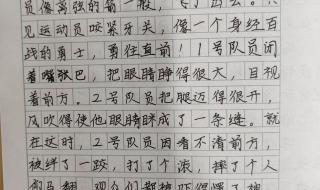 员像离弦的箭一般,飞了出去。只
见运动员咬紧牙关,像一个身经百
战的勇士,勇往直前!1号队员闭
着嘴张巴,把眼睛睁得很大,目视
着前方。2号队员把腿迈得很开,
风吹得使他眼睛眯成了一条缝。就
在这时,2号队员因看不清前方,
被绊了一跤,打了个滚,摔了个人
仰马翻,观众们都被吓得愣了